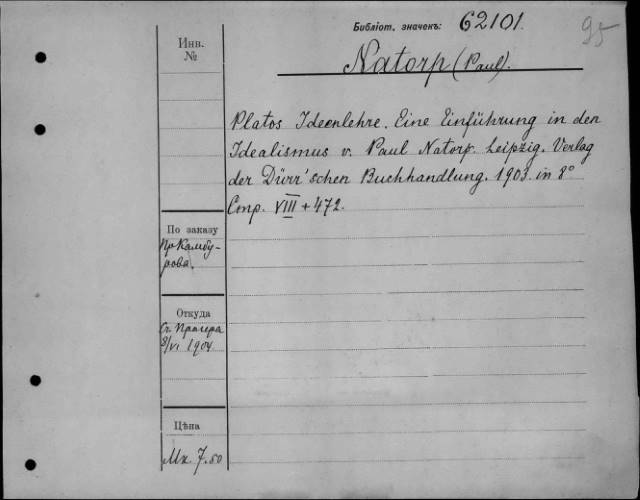 Библіот. значекъ: 62101.
95
Инв.
№
Natorp (Paul).
Platos Ideenlehre. Eine Einführung in den
Idealismus v. Paul Natorp. Leipzig. Verlag
der Dürr'schen Buchhandlung. 1903. in 8°
Стр. VIII + 472.
По заказу
Пр. Камбу-
рова.
Откуда
От Прагера
8/VI 1904
Цѣна
Мк. 7.50